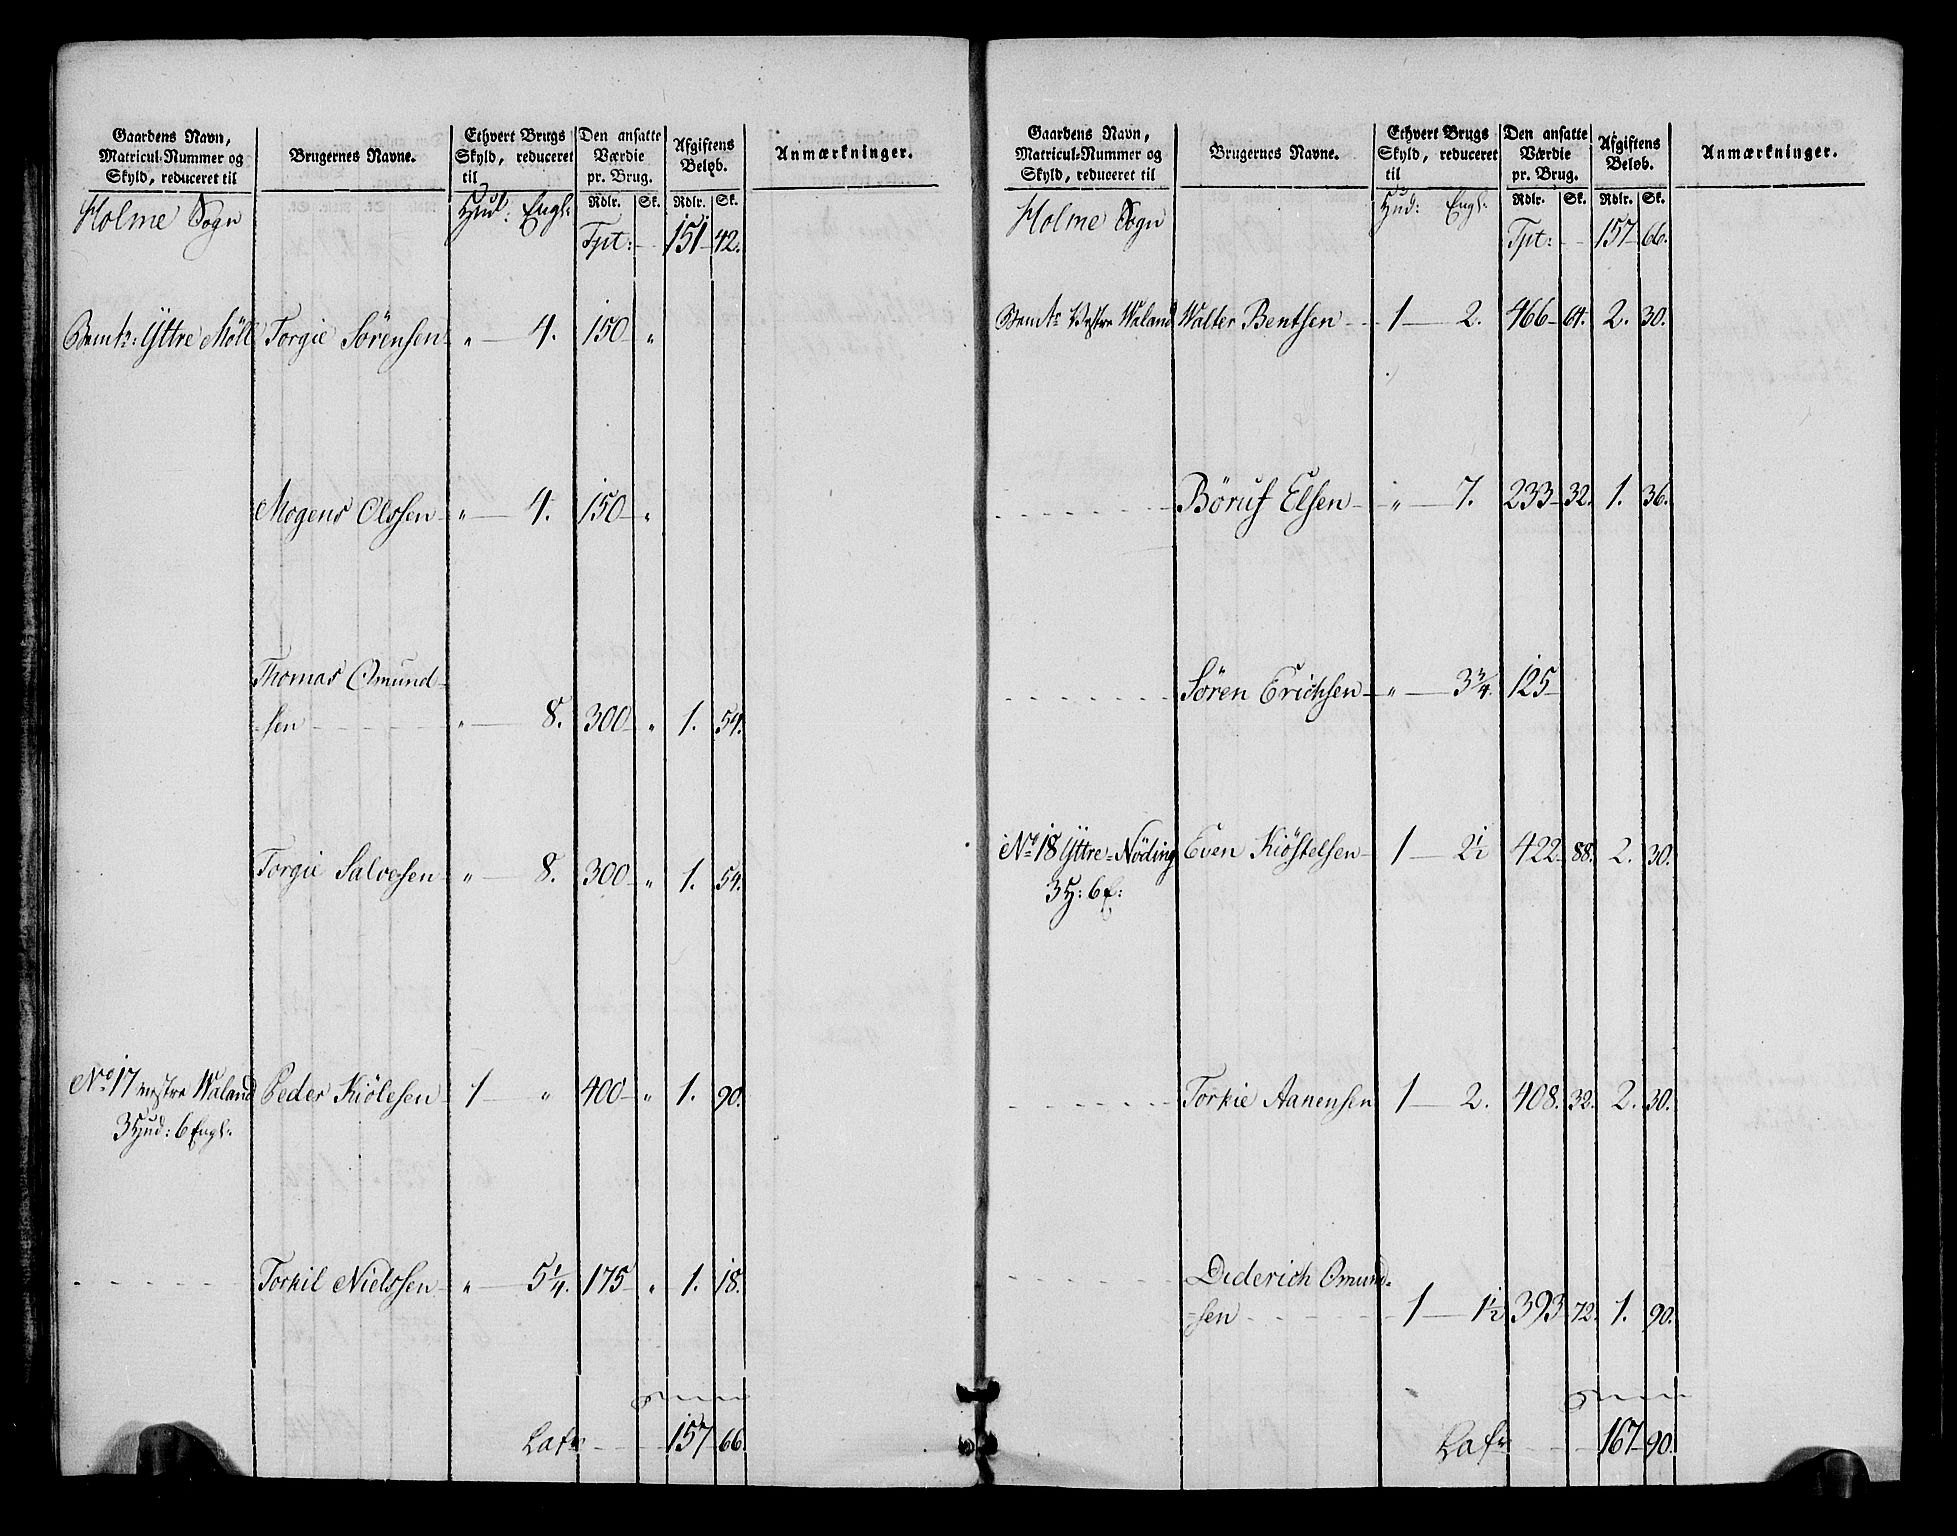 Gaardens Navn, Matricul-Nummer og Skyld, reduceret til | Brugernes Navne. | Ethvert Brugs Skyld, reduceret til | Den ansatte Værdie pr. Brug. | Afgiftens Beløb. | Anmærkninger.
Holme Sogn | Hud: Engl: | Rdlr. Sk. | Rdlr. Sk.
Tpt: - 151 42.
Bemte: Yttre Möll Torgie Sörensen " 4. 150 "
Mogens Olssen " 4. 150 "
Thomas Omund-
sen " 8. 300 " 1. 54.
Torgie Salvesen " 8. 300 " 1. 54.
No 17 vestre Waland Peder Kiölesen 1 " 400 " 1. 90.
3 Hud: 6 Engl:
Torkil Nielssen " 5 1/4. 175 " 1. 18.
Lats 157 66
Gaardens Navn, Matricul-Nummer og Skyld, reduceret til | Brugernes Navne. | Ethvert Brugs Skyld, reduceret til | Den ansatte Værdie pr. Brug. | Afgiftens Beløb. | Anmærkninger.
Holme Sogn | Hud: Engl: | Rdlr. Sk. | Rdlr. Sk.
Tpt: - - 157 66.
Bemte Vestre Waland Walter Bentsen 1 2. 466 64. 2. 30.
Böruf Elsen " 7. 233 32. 1. 36.
Sören Erichsen " 3 3/4. 125
No 18 Yttre-Nöding Even Kiöstelsen 1 2 1/2 422 88. 2. 30.
3 H: 6 E:
Torkie Aanensen 1 2. 408. 32. 2. 30.
Diderich Omund-
sen 1 1 1/2 393 72. 1. 90.
Lats 167 90.